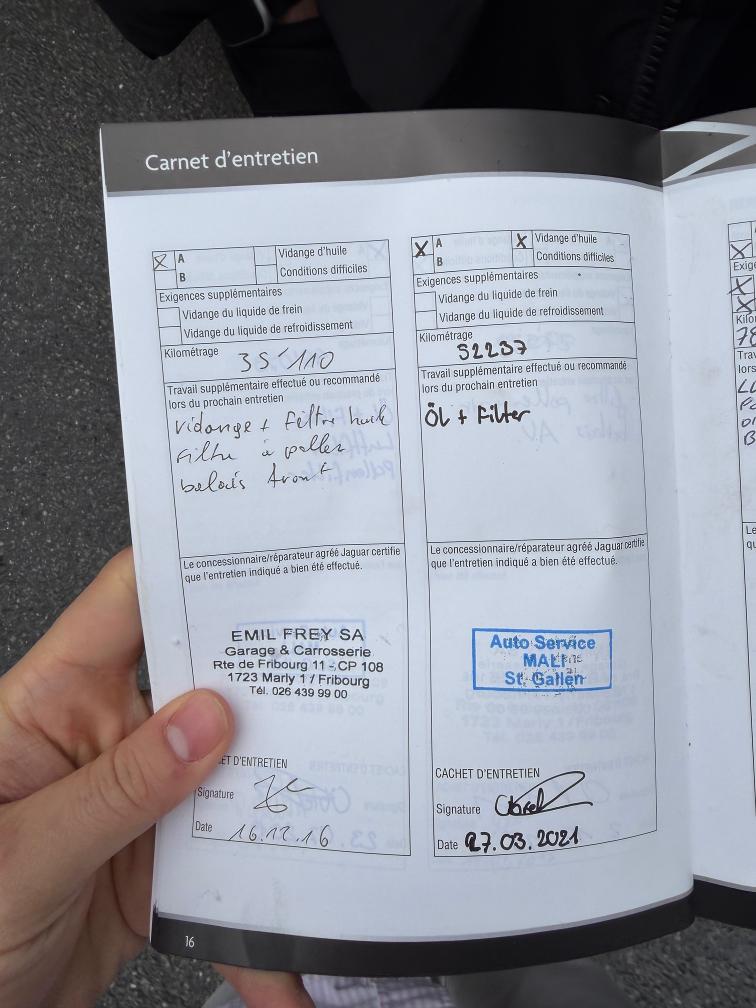 Carnet d'entretien
A
Vidange d'huile
B
Conditions difficiles
Exigences supplémentaires
Vidange du liquide de frein
Vidange du liquide de refroidissement
Kilométrage
35'110
Travail supplémentaire effectué ou recommandé
lors du prochain entretien
vidange + filtre huile
Filtre à pollen
balais Avant
Le concessionnaire/réparateur agréé Jaguar certifie
que l'entretien indiqué a bien été effectué.
EMIL FREY SA
Garage & Carrosserie
Rte de Fribourg 11 - CP 108
1723 Marly 1 / Fribourg
Tél. 026 439 99 00
ET D'ENTRETIEN
Signature
Date 16.12.16
X A
X Vidange d'huile
B
Conditions difficiles
Exigences supplémentaires
Vidange du liquide de frein
Vidange du liquide de refroidissement
Kilométrage
52237
Travail supplémentaire effectué ou recommandé
lors du prochain entretien
Öl + Filter
Le concessionnaire/réparateur agréé Jaguar certifie
que l'entretien indiqué a bien été effectué.
Auto Service
MALI
St. Gallen
CACHET D'ENTRETIEN
Signature
Date 27.03.2021
16